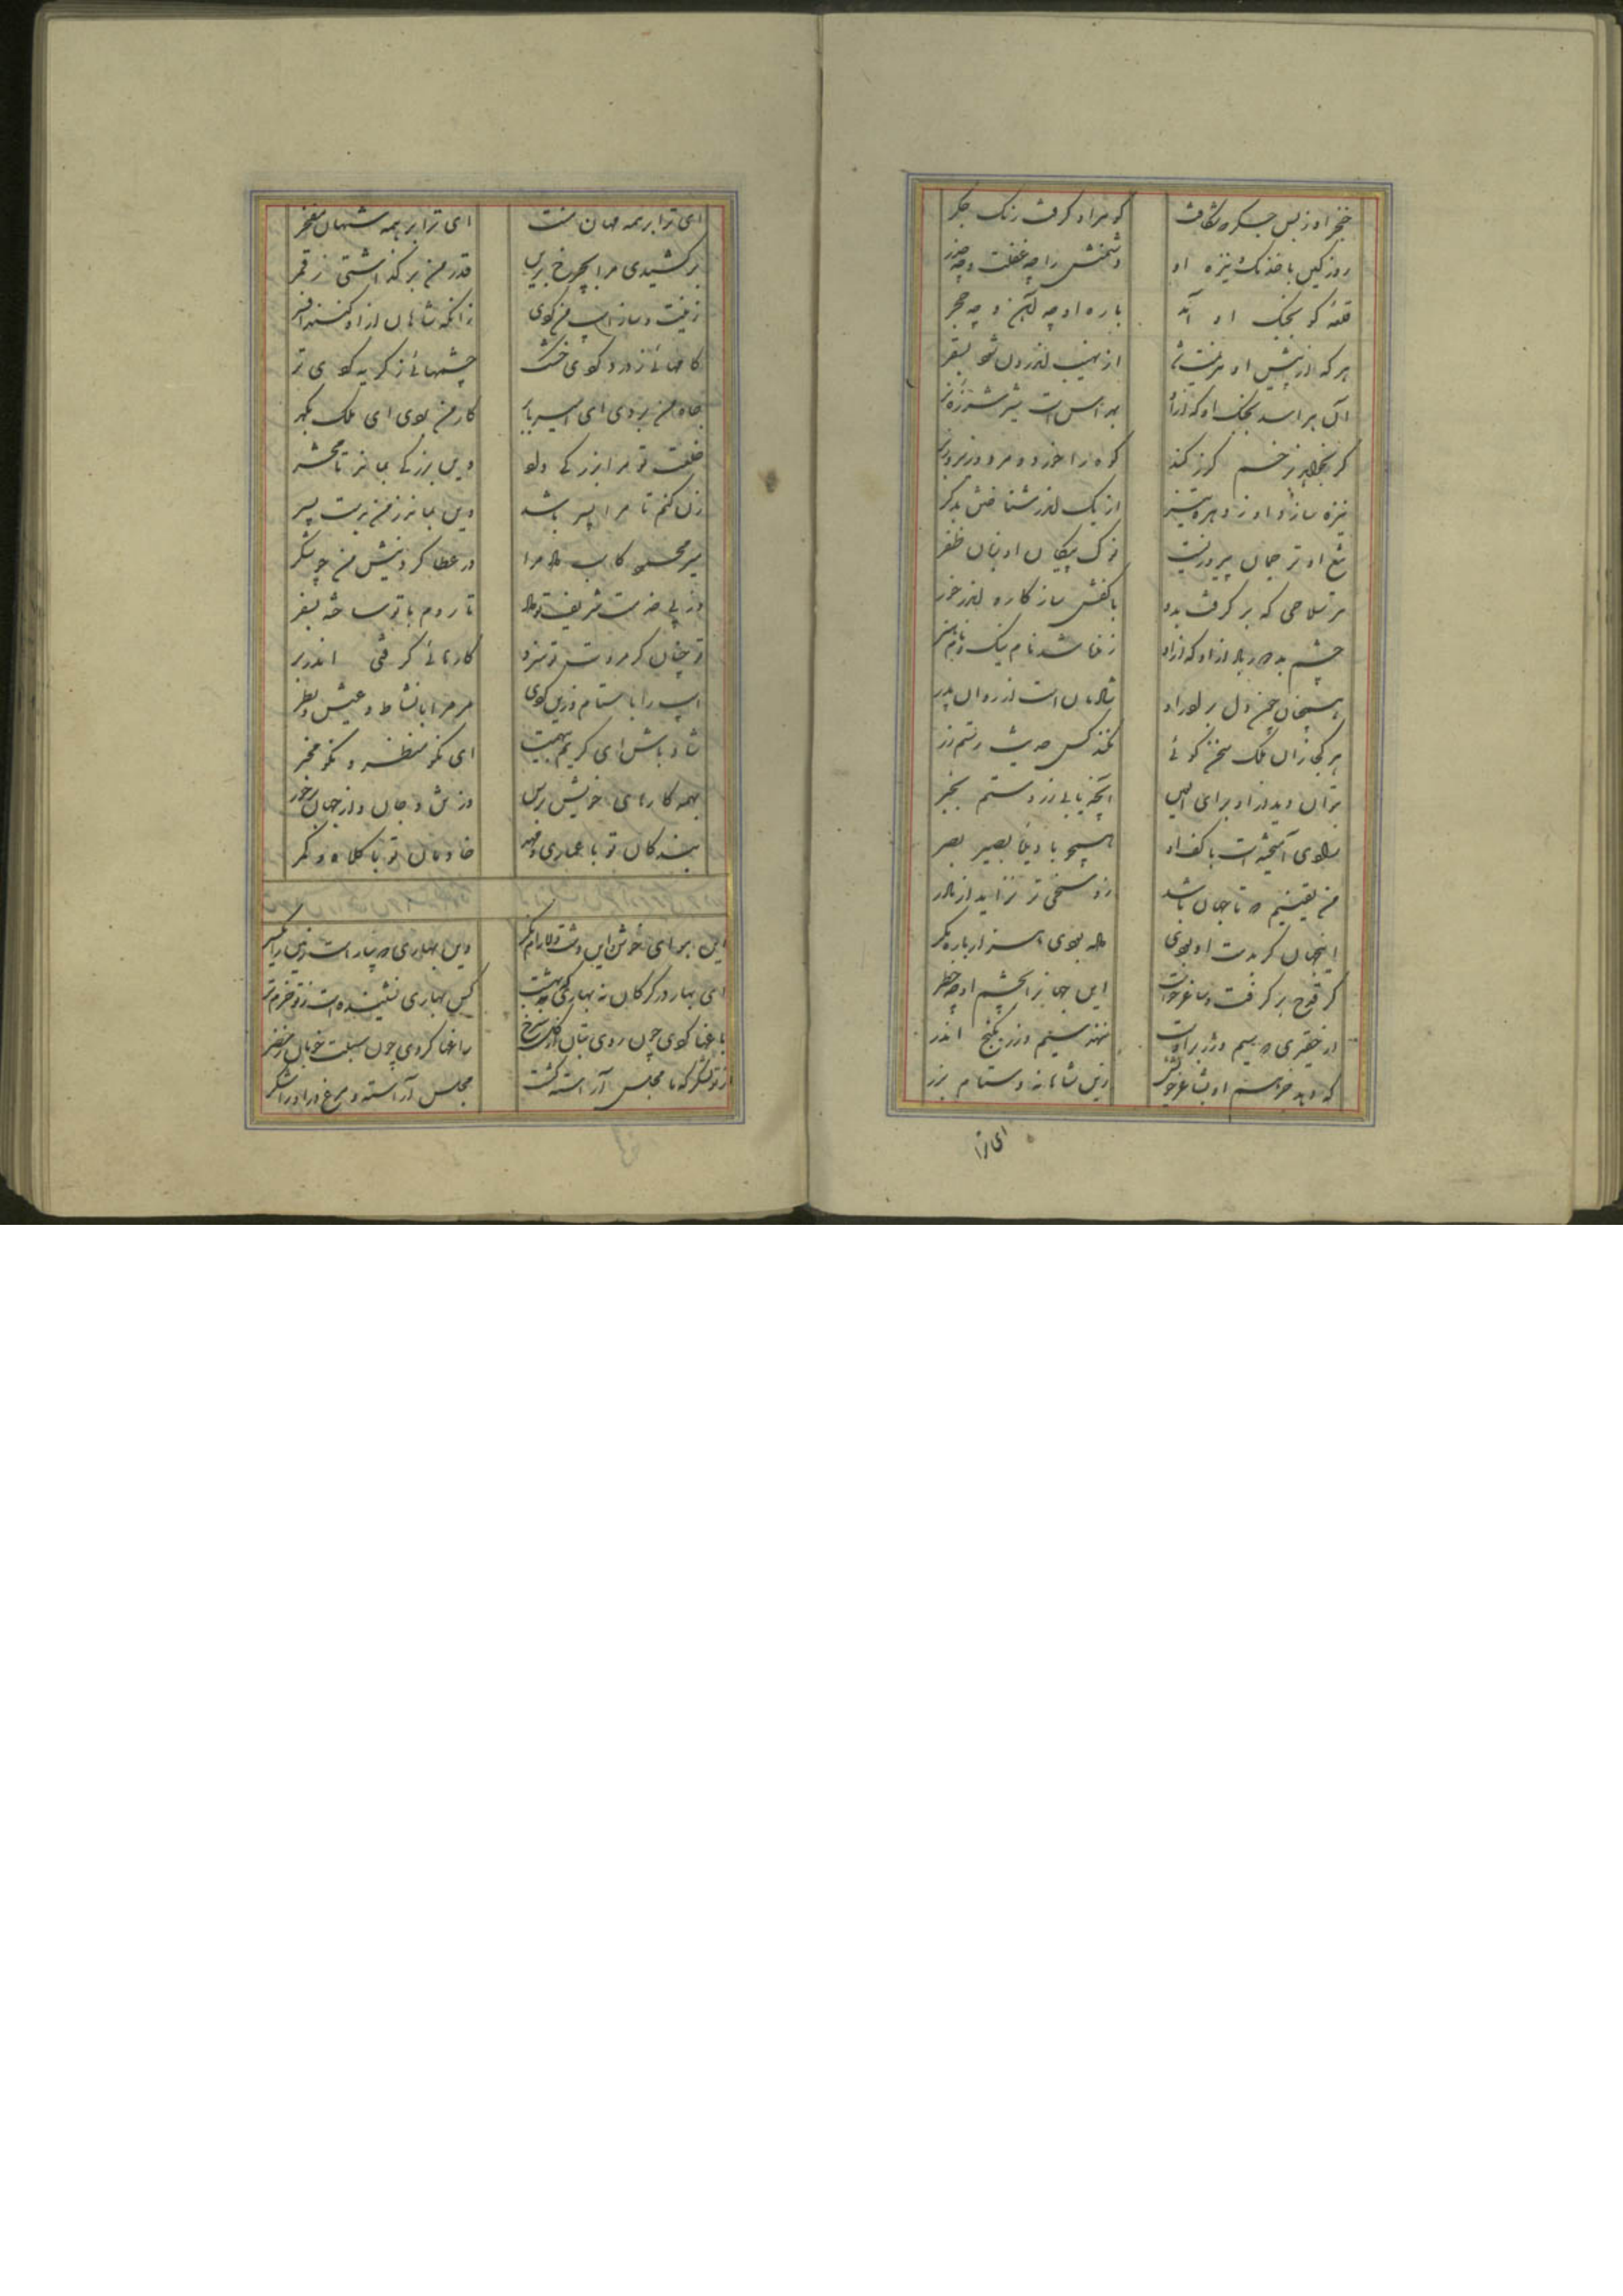 خنجر او ز بس جگر که شکافت    گوهر او گرفت رنگ جگر
روز کین با خدنگ و نیزه او    دشمنش را چه غفلت و چه حذر
قلعه کو بجنگ او آید    باره او چه آهن و چه حجر
هر که از پیش او هزیمت شد    از نهیب اندرون شود بسقر
آن هراسد بجنگ او که ازو    بهراس است شیر شرزه نر
گر بخواهد بزخم گرز کند    کوه را خورد و مرد و زیر و زبر
نیزه سازد او ز ده تیر    از یک اندر شناختش بدگر
تیغ او ترجمان پیروزیست    نوک پیکان او بنان ظفر
هر سلاحی که بر گرفت بدو    با کفش سازگاره اندر خور
چشم بد دور باد ازو که ازو    زنده شد نام نیک و نام هنر
همچنان چون دل برادر او    شادمان است ازو روان پدر
هر کجا زان ملک سخن گوئی    نکند کس حدیث رستم زر
بتوان دید ازو برای العین    آنچه یابی ز روستم بخبر
رادی آمیخته است با کف او    همچو با دیده بصیر بصر
من یقینم که تا جهان باشد    زو سخی تر نزاید از مادر
اینجهان گر بدست او بودی    هم نبودی سزا ر باره مگر
گر قدح بر گرفت و ساغر خواست    این جهانرا بچشم او چه خطر
از حقیری که سیم و زر بر اوست    ننهد سیم و زر بگنج اندر
که دهد خواسته او بشاعر خویش    زین شاهانه و ستام بزر
ای ترا
ای ترا بر همه مهان منت    ای ترا بر همه شهان مفخر
بر کشیدی مرا بچرخ برین    قدر من بر گذاشتی ز قمر
زینت و ساز اسب من کردی    زانکه شاهان ازو کنند افسر
کامهائی ز درد کردی خشک    چشمهائی ز گریه کردی تر
جاه من بردی ای امیر بابر    کار من کردی ای ملک بگهر
خلعت تو مرا بزرگی داد    وین بزرگی بماند تا محشر
زن کنم تا مرا پسر باشد    وین بماند ز من بدست پسر
میر محمود کاسب داد مرا    در عطا کردنیش من چو شکر
از پی خدمت شریف تو داد    تا روم با تو ساخته بسفر
تو چنان کردی و تو سزد    کارهائی گرفتی اندر بر
اسب را با ستام زرین کردی    مر مرا با نشاط و عیش و بطر
شاد باش ای کریم بی همت    ای نکو منظر و نکو مخبر
بهمه کامهای خویش برس    وز تن و جان و از جهان برخور
بندگان تو با عماری و مهد    خادمان تو با کلاه و کمر
این هوای خوش و این دشت دلارام نگر    وین بهاری که بیاراست زمین را یکسر
ای بهار در گرگان نه بهاری که بهشت    کس بهاری نشنیده است ز تو خرم تر
باغها کردی چون روی بتان از گل سرخ    راغها کردی چون سبلت خوبان ز خضر
از تو لشکرگه ما مجلس آراسته گشت    مجلس آراسته و مرغ درو رامشگر